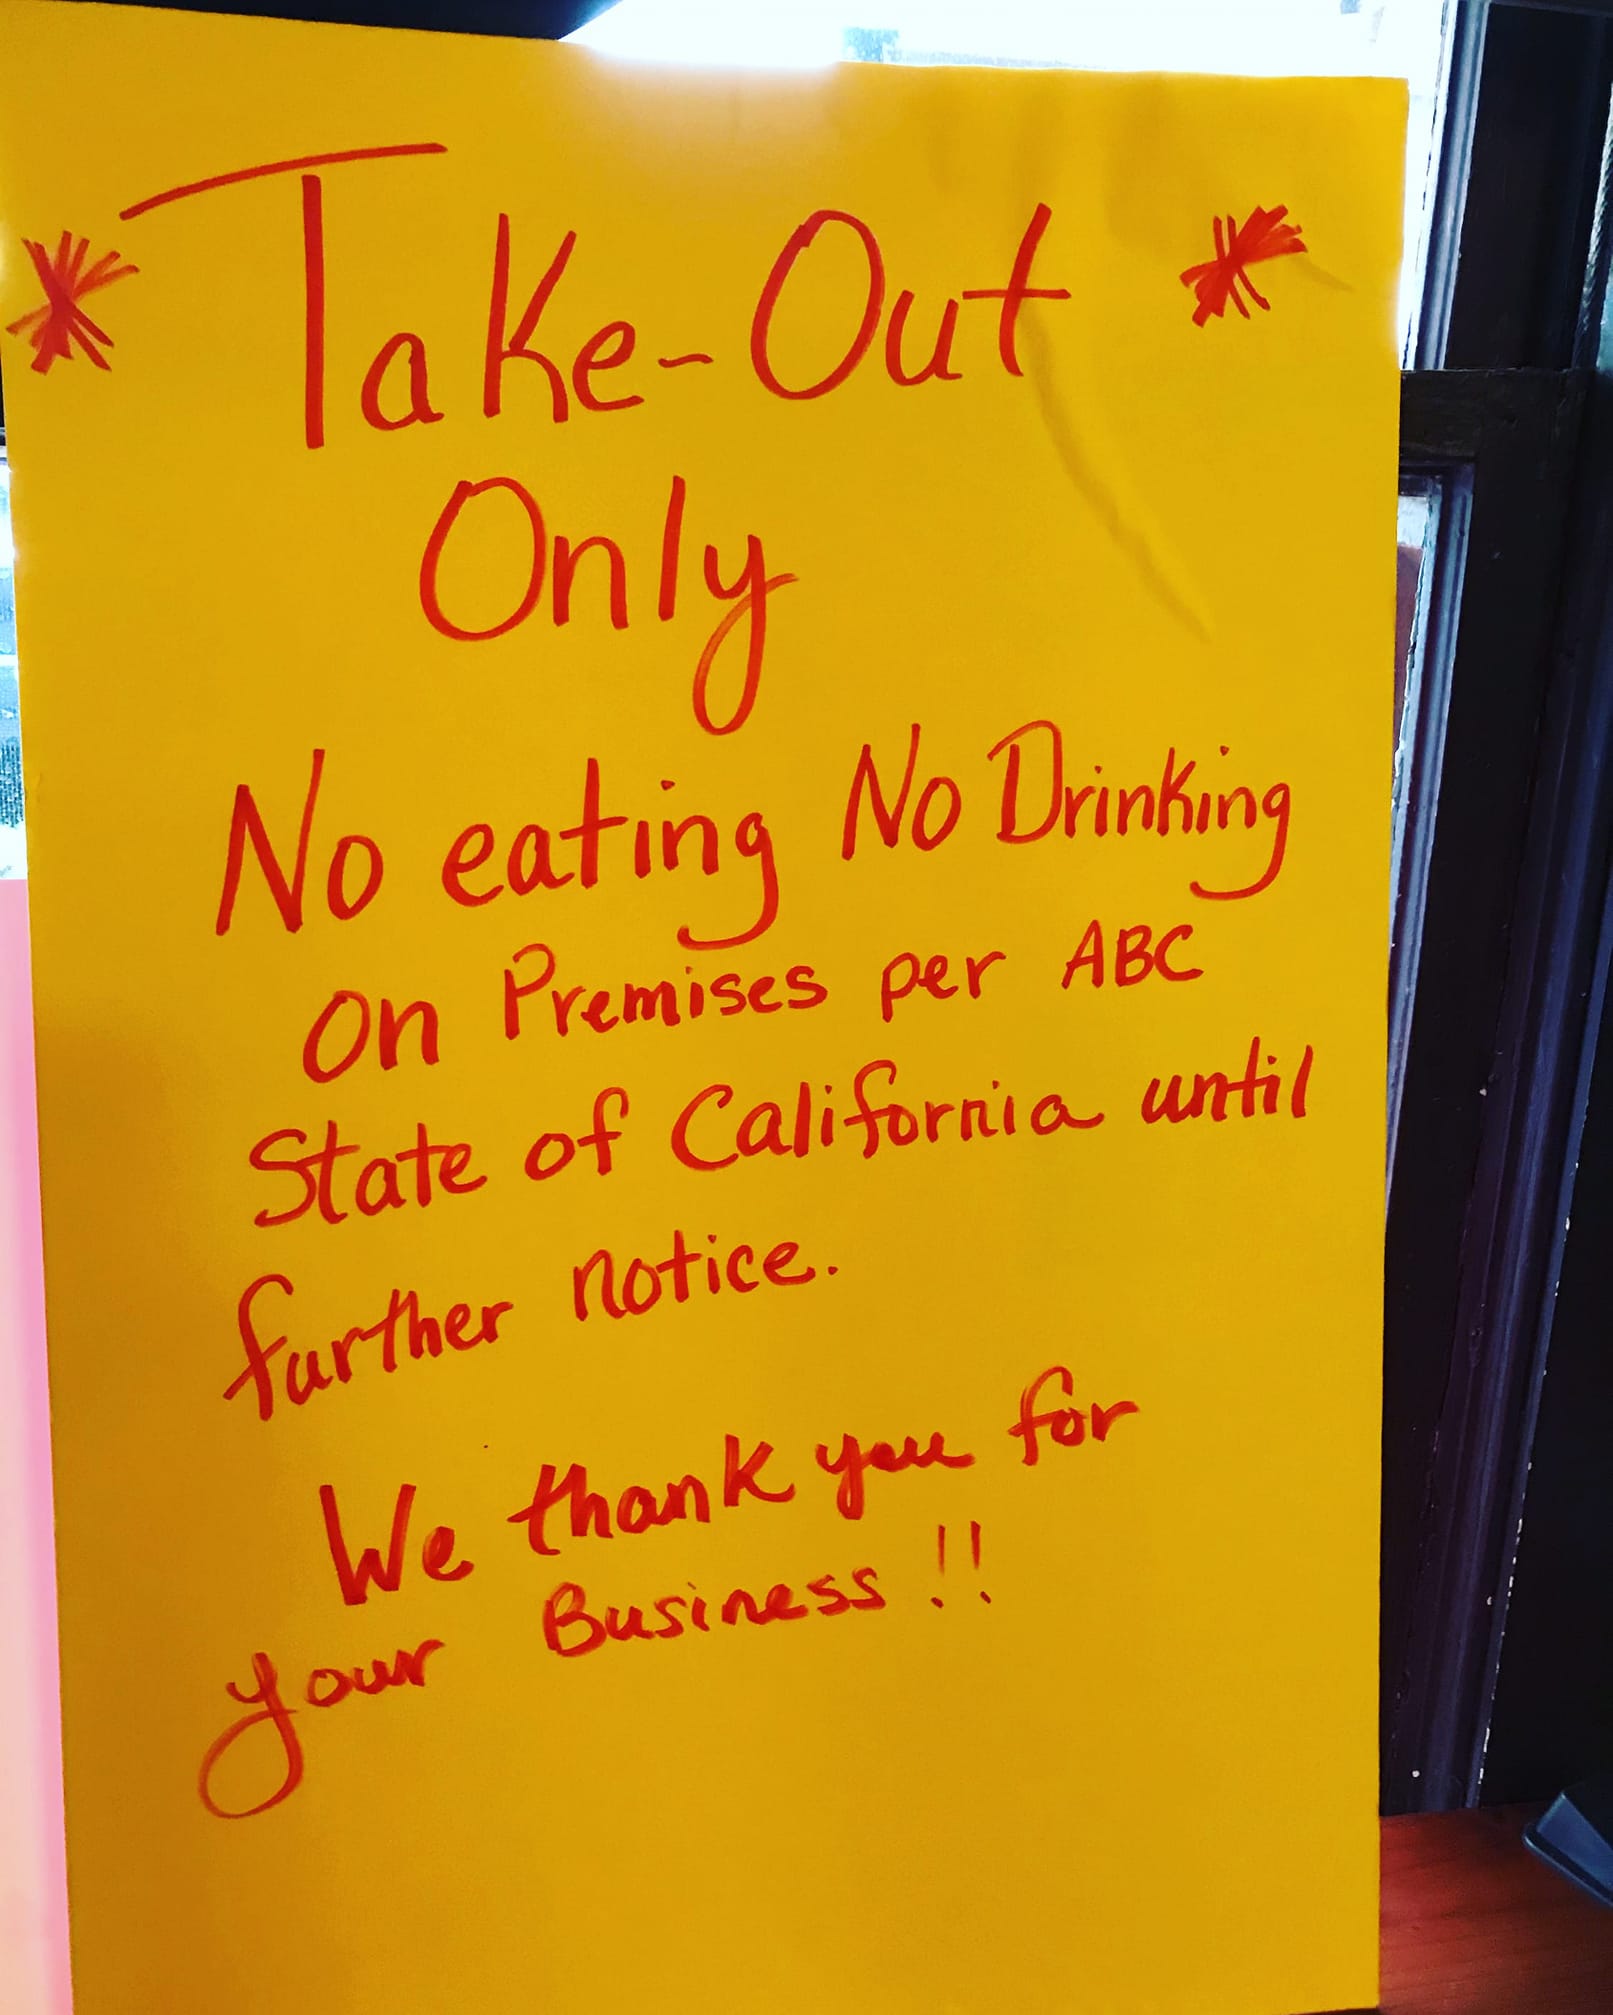 * Take-Out *
Only
No eating No Drinking
on Premises per ABC
State of California until
further notice.
We thank you for
your Business!!